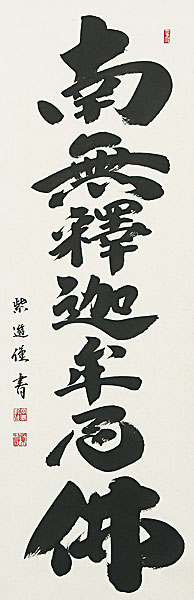 南無釋迦牟尼佛
紫逰僅書